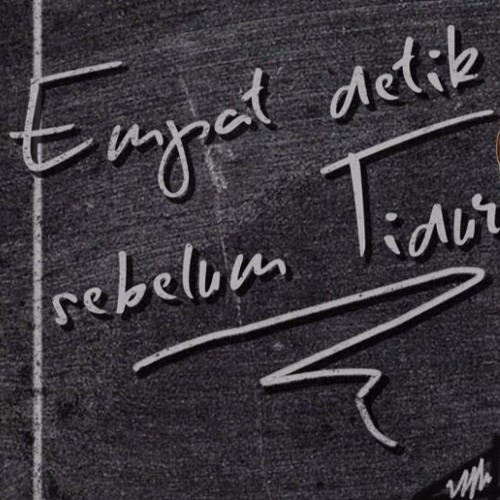 Empat detik
sebelum Tidur